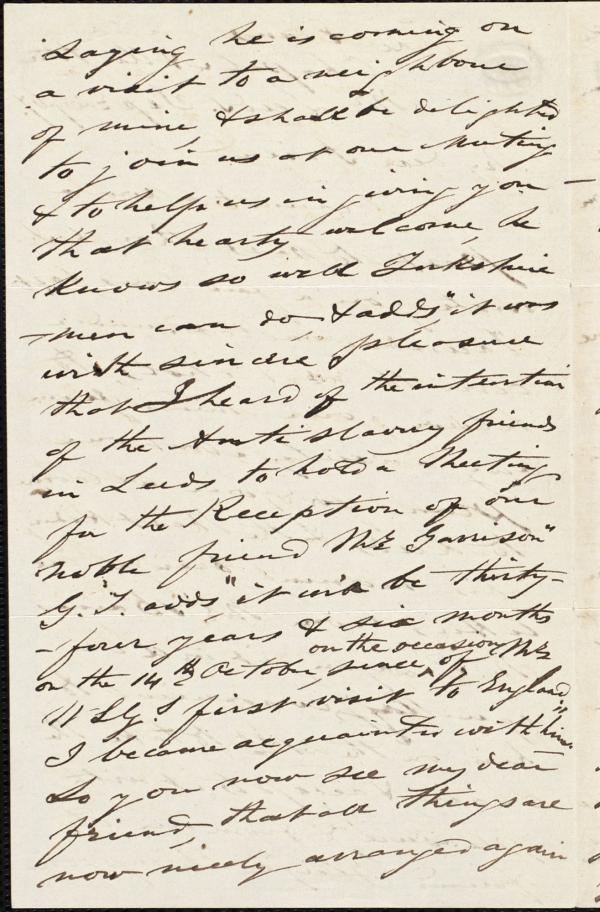 saying he is coming on
a visit to a neighbour
of mine, & shall be delighted
to join us at our Meeting
& to help us in giving you —
that hearty welcome, he
knows so well Yorkshire
-men can do, & adds, "it was
with sincere pleasure
that I heard of the intention
of the Anti Slavery friends
in Leeds to hold a Meeting
for the Reception of our
noble friend Mr Garrison"
G. T. adds, "it will be thirty-
-four years & six months
on the 14th October, since, on the occasion of Mr
W L G's first visit to England,
I became acquainted with him"
So you now see my dear
friend, that all things are
now nicely arranged again